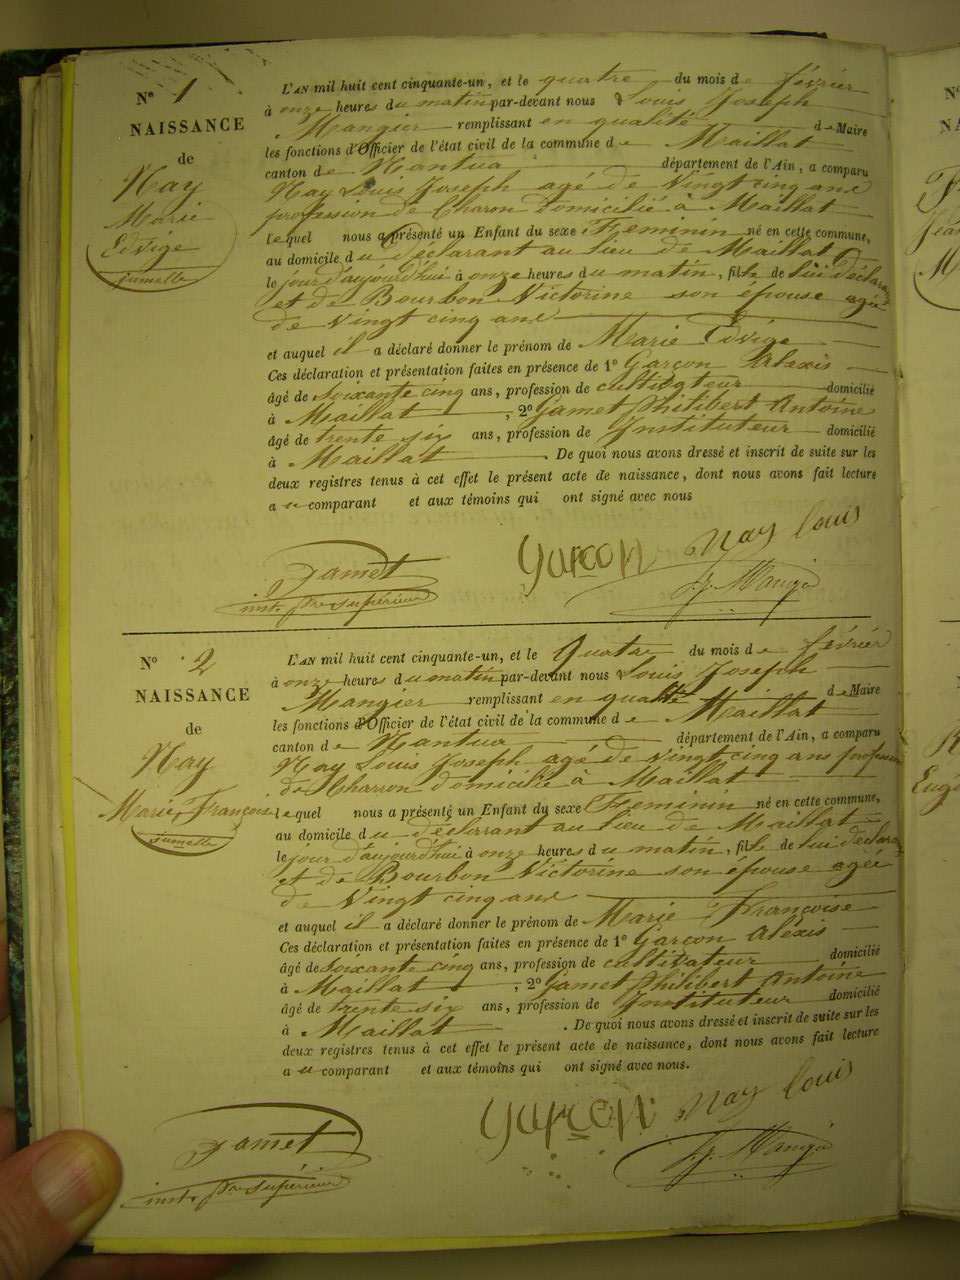 N° 1
NAISSANCE
de
Nay
Marie
Edvige
jumelle
L'AN mil huit cent cinquante-un, et le quatre du mois de février
à onze heures du matin par-devant nous Louis Joseph
Mangier remplissant en qualité de Maire
les fonctions d'Officier de l'état civil de la commune de Maillat
canton de Nantua département de l'Ain, a comparu
Nay Louis Joseph agé de vingt cinq ans
profession de Charon domicilié à Maillat
lequel nous a présenté un Enfant du sexe Feminin né en cette commune,
au domicile du déclarant au lieu de Maillat
le jour d'aujourd'hui à onze heures du matin, fille de lui déclarant
et de Bourbon Victorine son épouse agée
de vingt cinq ans
et auquel il a déclaré donner le prénom de Marie Edvige
Ces déclaration et présentation faites en présence de 1° Garçon Alexis
âgé de soixante cinq ans, profession de cultivateur domicilié
à Maillat, 2° Jamet Philibert Antoine
âgé de trente six ans, profession de Instituteur domicilié
à Maillat. De quoi nous avons dressé et inscrit de suite sur les
deux registres tenus à cet effet le présent acte de naissance, dont nous avons fait lecture
au comparant et aux témoins qui ont signé avec nous
Jamet garçon Nay louis
inst. pre supérieur L. J. Mangier
N° 2
NAISSANCE
de
Nay
Marie, Françoise
jumelle
L'AN mil huit cent cinquante-un, et le Quatre du mois de février
à onze heures du matin par-devant nous Louis Joseph
Mangier remplissant en qualité de Maire
les fonctions d'Officier de l'état civil de la commune de Maillat
canton de Nantua département de l'Ain, a comparu
Nay Louis Joseph agé de vingt cinq ans profession
de Charron domicilié à Maillat
lequel nous a présenté un Enfant du sexe Feminin né en cette commune,
au domicile du déclarrant au lieu de Maillat
le jour d'aujourd'hui à onze heures du matin, fille de lui déclarant
et de Bourbon Victorine son épouse agée
de vingt cinq ans
et auquel il a déclaré donner le prénom de Marie Françoise
Ces déclaration et présentation faites en présence de 1° Garçon Aléxis
âgé de soixante cinq ans, profession de cultivateur domicilié
à Maillat, 2° Jamet Philibert Antoine
âgé de trente six ans, profession de Instituteur domicilié
à Maillat. De quoi nous avons dressé et inscrit de suite sur les
deux registres tenus à cet effet le présent acte de naissance, dont nous avons fait lecture
au comparant et aux témoins qui ont signé avec nous.
Jamet garçon Nay louis
inst. pre supérieur L. J. Mangier